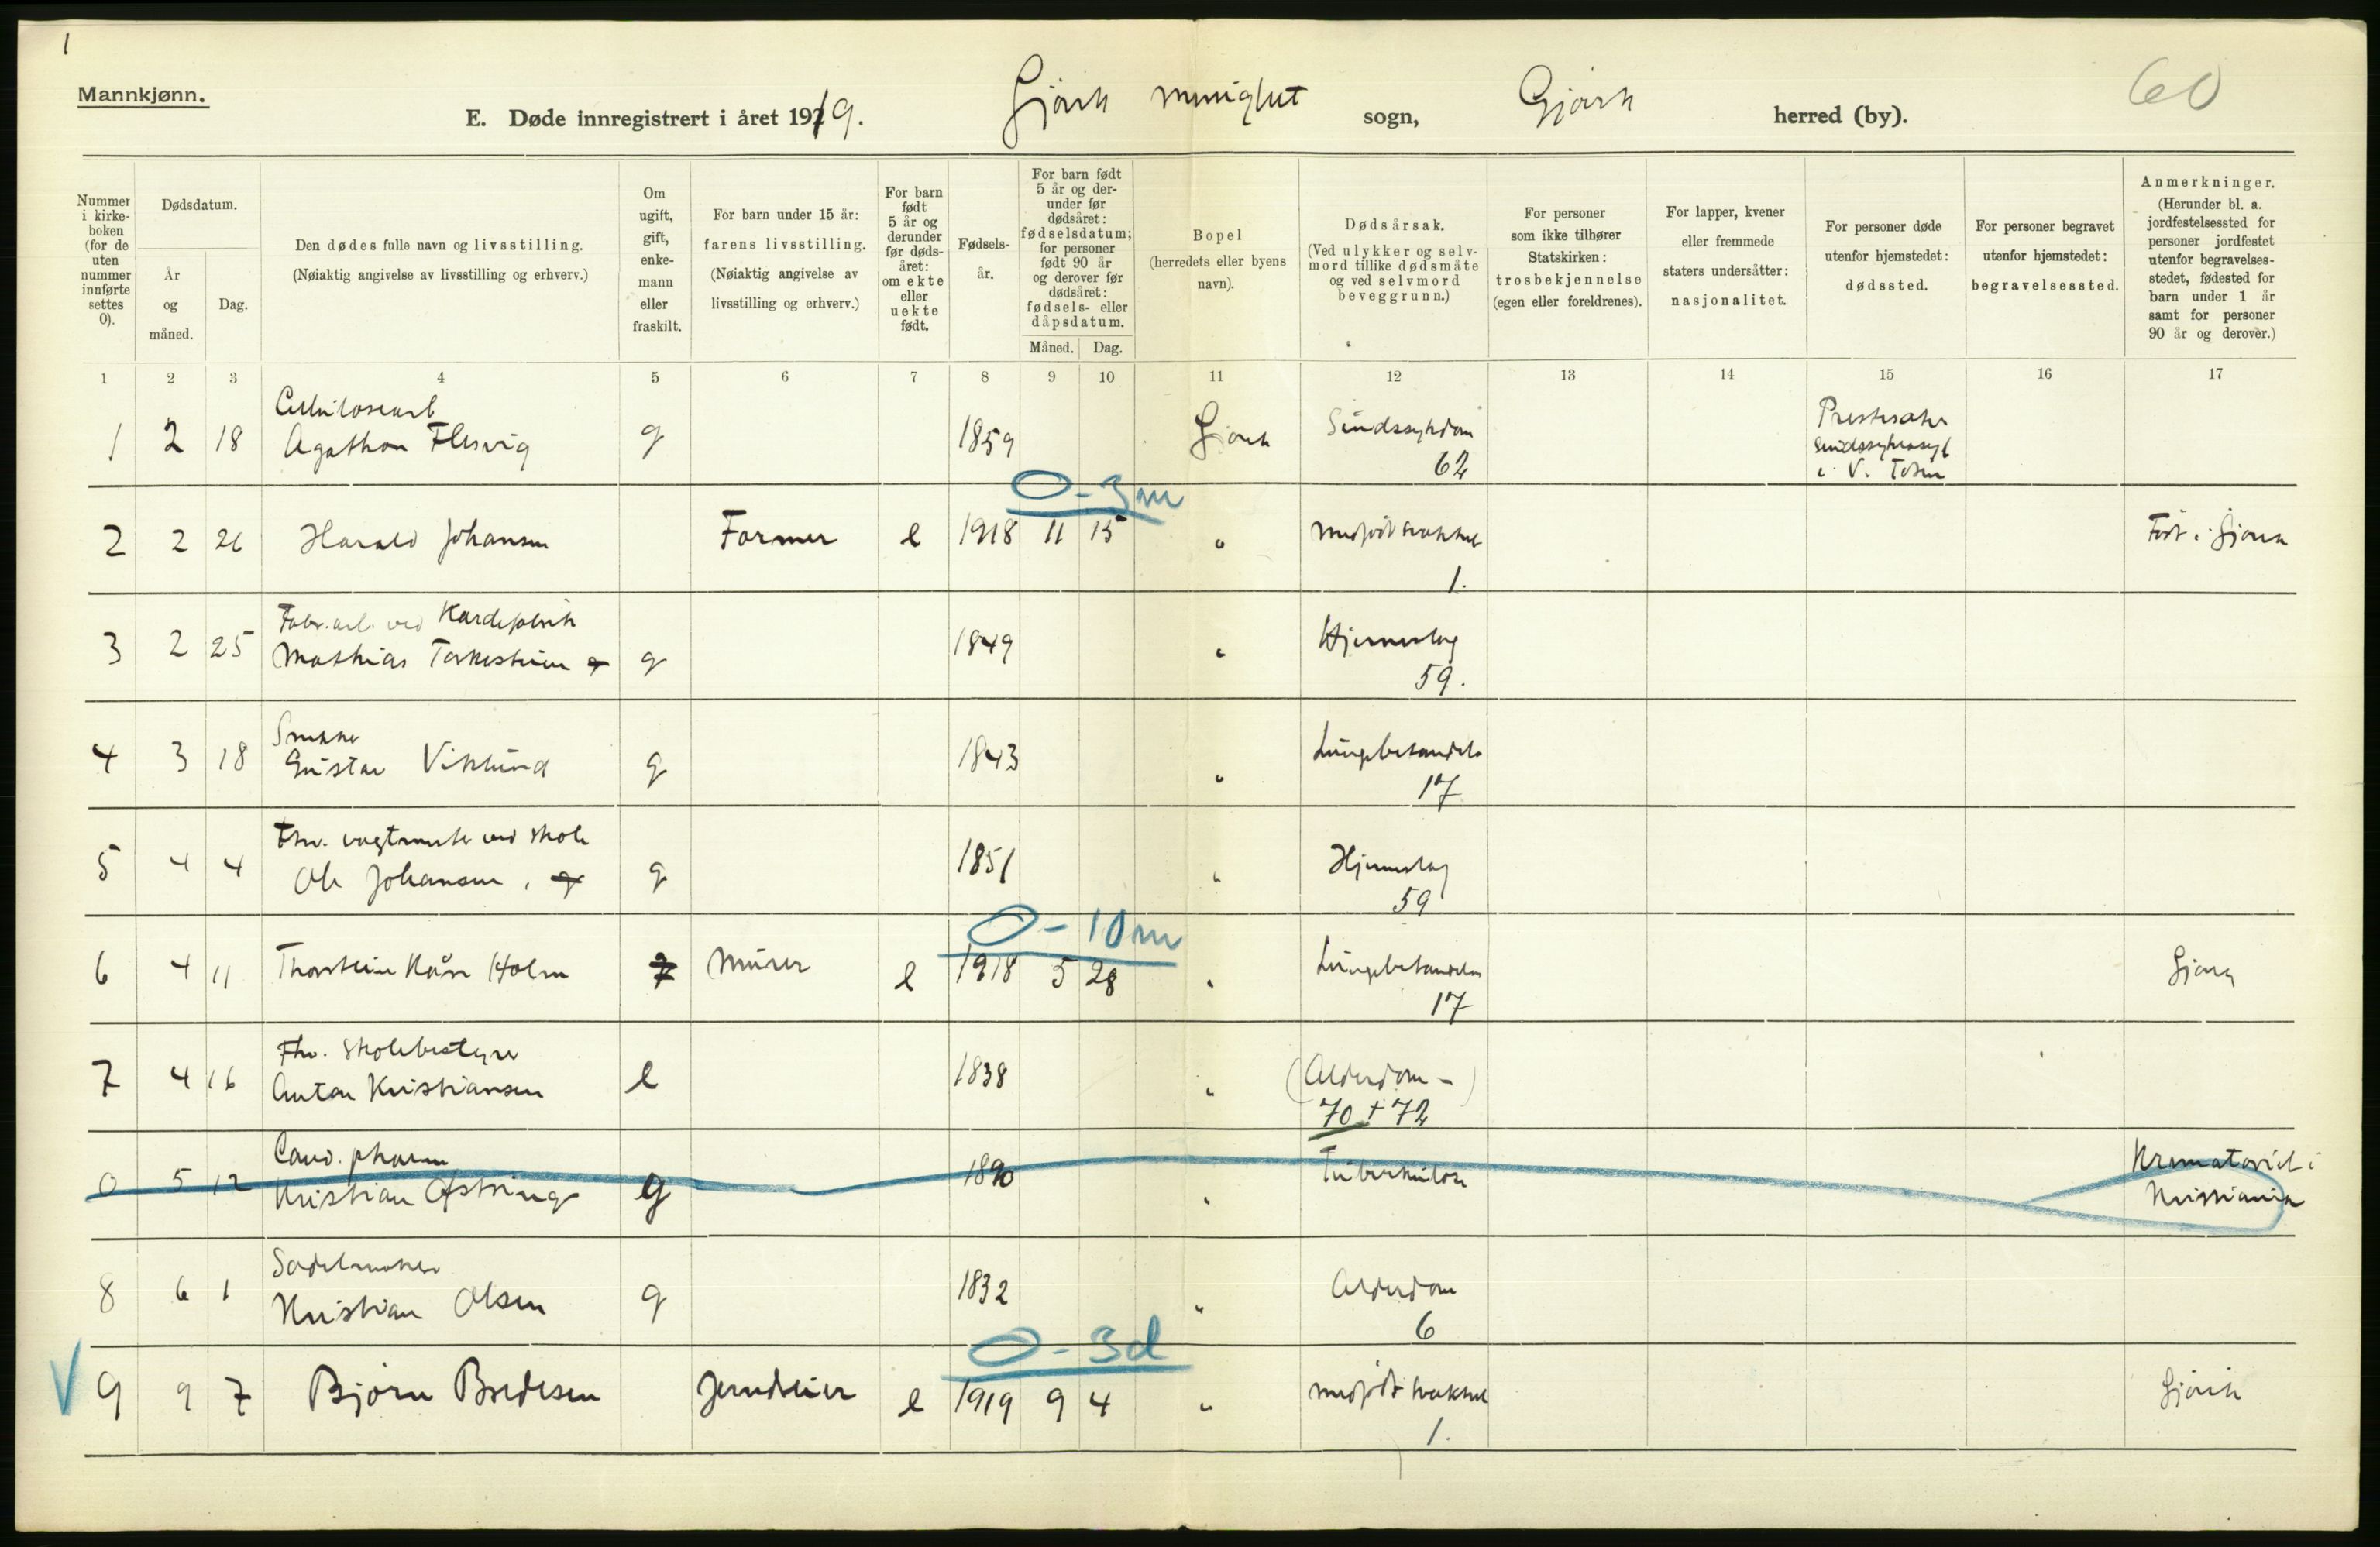 1
Mannkjønn.
E. Døde innregistrert i året 1919. Gjøvik menighet sogn, Gjøvik herred (by). 60
Nummer i kirkeboken (for de uten nummer innførte settes 0).
Dødsdatum.
År og måned.
Dag.
Den dødes fulle navn og livsstilling.
(Nøiaktig angivelse av livsstilling og erhverv.)
Om ugift, gift, enkemann eller fraskilt.
For barn under 15 år: farens livsstilling.
(Nøiaktig angivelse av livsstilling og erhverv.)
For barn født 5 år og derunder før dødsåret: om ekte eller uekte født.
Fødselsår.
For barn født 5 år og derunder før dødsåret: fødselsdatum; for personer født 90 år og derover før dødsåret: fødsels- eller dåpsdatum.
Måned. Dag.
Bopel
(herredets eller byens navn).
Dødsårsak.
(Ved ulykker og selvmord tillike dødsmåte og ved selvmord beveggrunn.)
For personer som ikke tilhører Statskirken: trosbekjennelse (egen eller foreldrenes).
For lapper, kvener eller fremmede staters undersåtter: nasjonalitet.
For personer døde utenfor hjemstedet: dødssted.
For personer begravet utenfor hjemstedet: begravelsessted.
Anmerkninger.
(Herunder bl. a. jordfestelsessted for personer jordfestet utenfor begravelsesstedet, fødested for barn under 1 år samt for personer 90 år og derover.)
1 2 3 4 5 6 7 8 9 10 11 12 13 14 15 16 17
Cellulosearb
1 2 18 Agathon Flesvig g 1859 Gjøvik Sindssykdom
62
Sindssykeasyl
i V. Toten
0 - 3 m
2 2 26 Harald Johansen Former e 1918 11 15 " medfødt svakhet Født i Gjøvik
1.
Fabr.arb. ved Kardefabrik
3 2 25 Mathias g 1849 " Hjerneslag
59.
Snekker
4 3 18 Gustav Viklund g 1843 " Lungebetændelse
17
Fhv. vagtmester ved skole
5 4 4 Ole Johansen, g 1851 " Hjerneslag
59
0 - 10 m
6 4 11 Thorstein Kåre Holm Murer e 1918 5 28 " Lungebetændelse Gjøvik
17
Fhv. skolebestyrer
7 4 16 Anton Kristiansen e 1838 " (Alderdom -)
70 + 72
Cand. pharm
0 5 12 Kristian g 1890 " Tuberkulose Krematoriet i
Kristiania
Sadelmaker
8 6 1 Kristian Olsen g 1832 " Alderdom
6
0 - 3 d
V 9 9 7 Bjørn Bredesen Jerndreier e 1919 9 4 " medfødt svakhet Gjøvik
1.